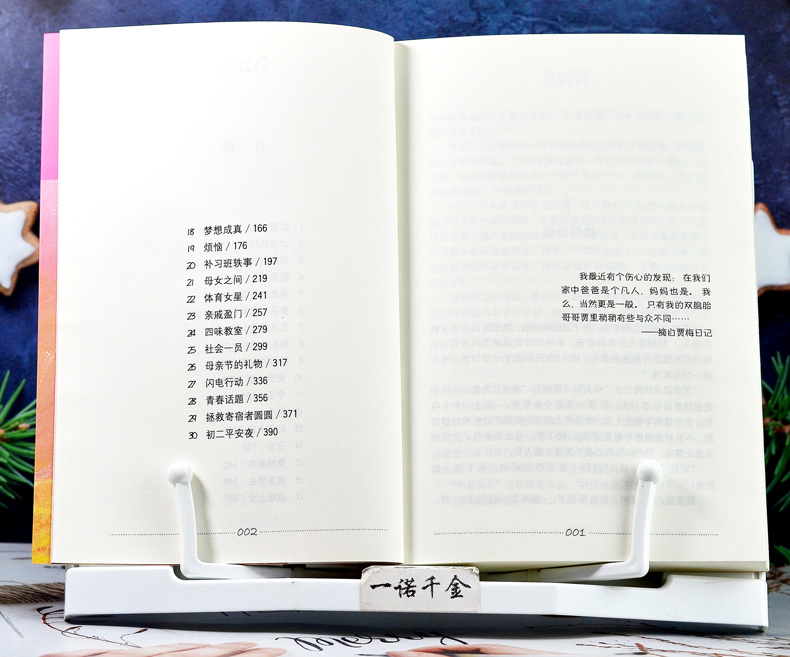 18 梦想成真 / 166
19 烦恼 / 176
20 补习班轶事 / 197
21 母女之间 / 219
22 体育女星 / 241
23 亲戚盈门 / 257
24 四味教室 / 279
25 社会一员 / 299
26 母亲节的礼物 / 317
27 闪电行动 / 336
28 青春话题 / 356
29 拯救寄宿者圆圆 / 371
30 初二平安夜 / 390
002
我最近有个伤心的发现：在我们
家中爸爸是个凡人，妈妈也是。我
么，当然更是一般。只有我的双胞胎
哥哥贾里稍稍有些与众不同……
——摘自贾梅日记
001
一诺千金